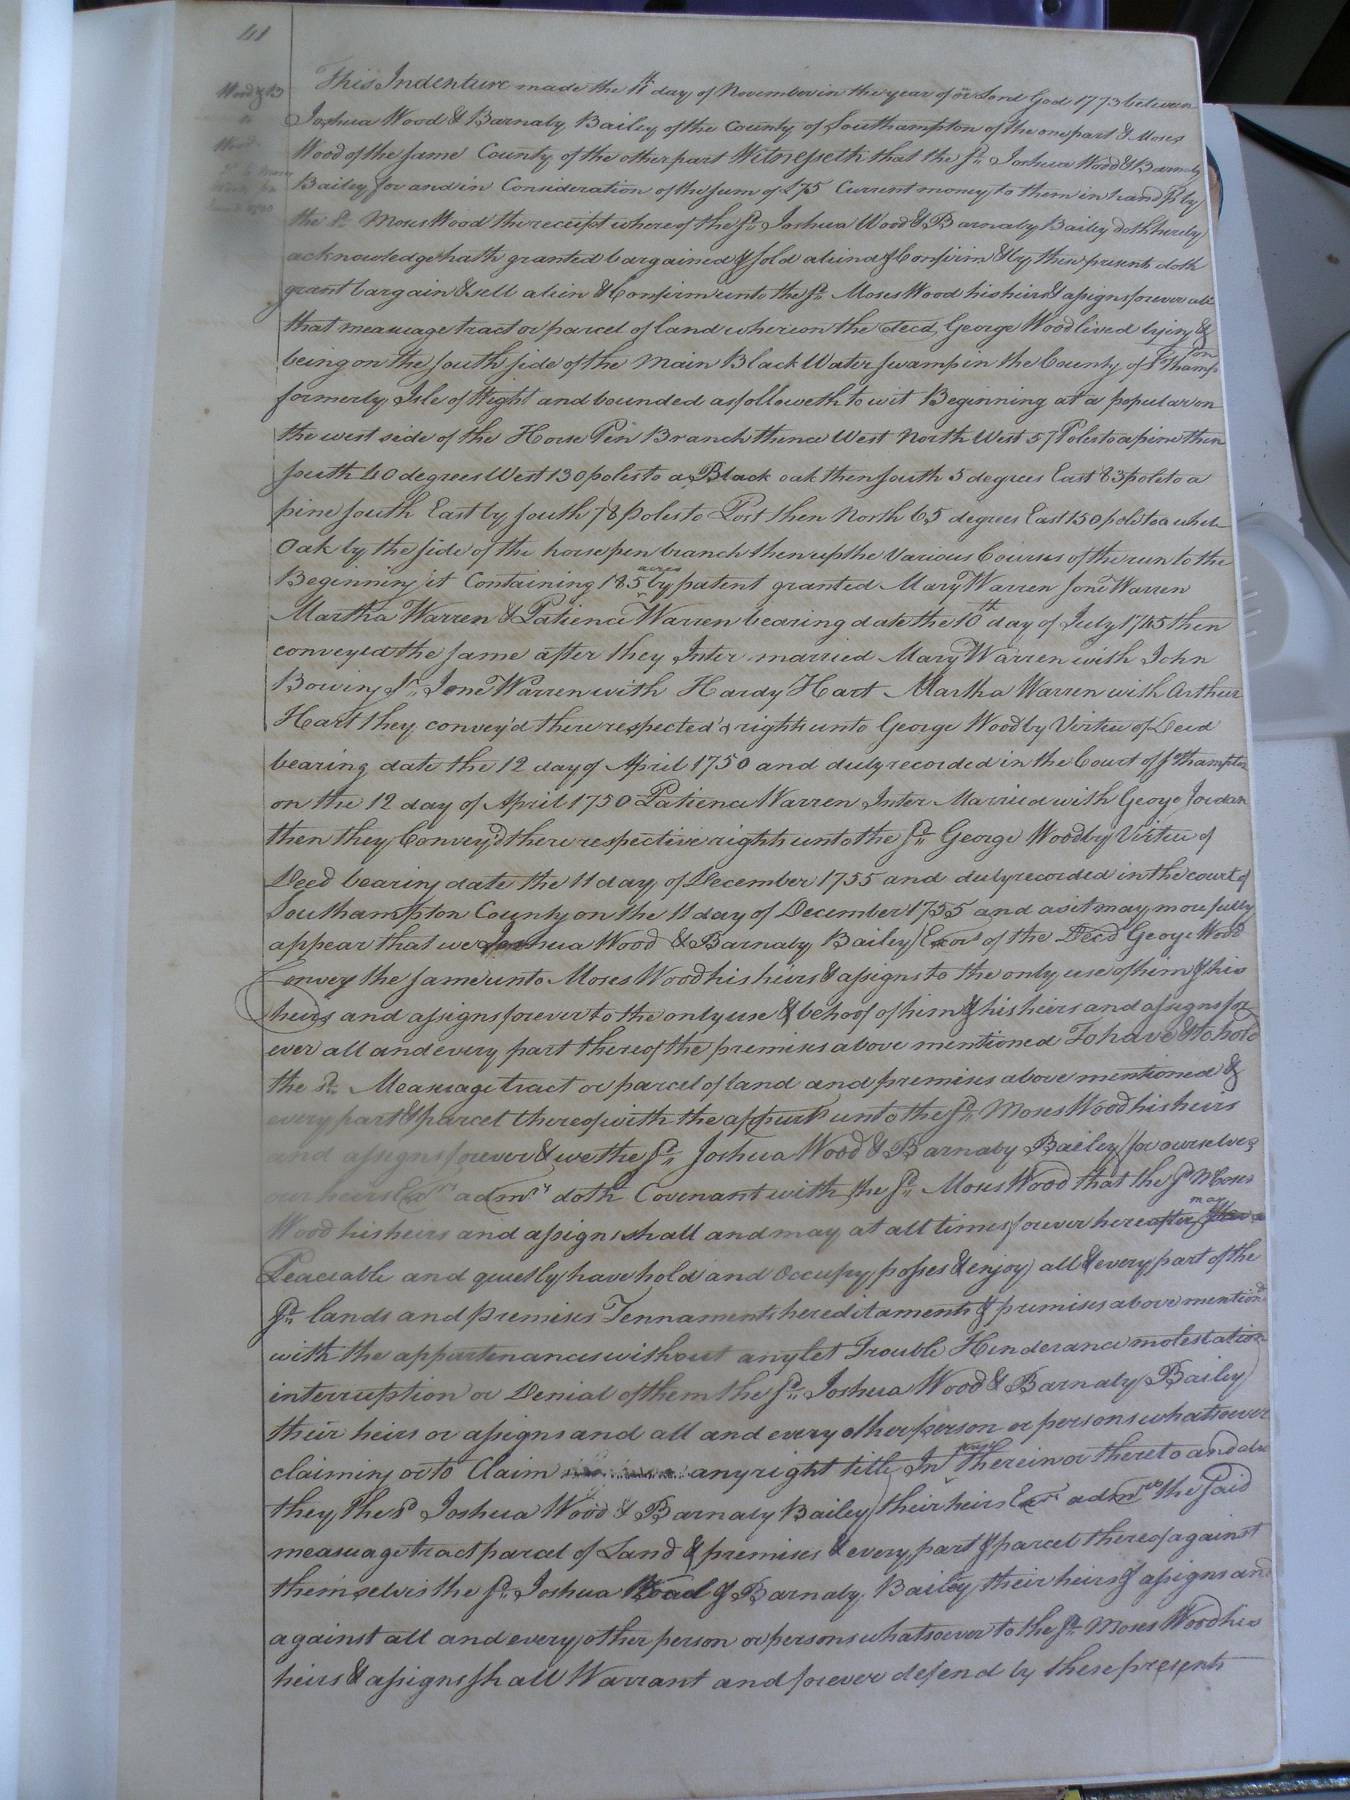 41
Wood & B
to
Wood
This Indenture made the 11th day of November in the year of our Lord God 1773 between
Joshua Wood & Barnaby Bailey of the County of Southampton of the one part & Moses
Wood of the same County of the other part Witnesseth that the sd. Joshua Wood & Barnaby
Bailey for and in Consideration of the sum of £75 Current money to them in hand pd by
the sd. Moses Wood the receipt whereof the sd. Joshua Wood & Barnaby Bailey doth hereby
acknowledge hath granted bargained & sold aliend & Confirm & by these presents doth
grant bargain & sell alien & Confirm unto the sd. Moses Wood his heirs & asigns forever all
that measuage tract or parcel of land whereon the decd, George Wood lived lying &
being on the south side of the Main Black Water swamp in the County of S°thampton
formerly Isle of Wight and bounded as followeth to wit Beginning at a popular on
the west side of the Horse Pen Branch thence West North West 57 Poles to a pine then
south 40 degrees West 130 poles to a Black oak then south 5 degrees East 83 pole to a
pine south East by south 78 poles to Post then North 65 degrees East 150 pole to a white
Oak by the side of the horse pen branch then up the Various Courses of the run to the
Beginning it Containing 185 acres by patent granted Mary Warren Jone Warren
Martha Warren & Patience Warren bearing date the 10th day of July 1745 then
conveyed the same after they Inter married Mary Warren with John
Bowing Jr. Jone Warren with Hardy Hart Martha Warren with Arthur
Hart they convey'd there respected's rights unto George Wood by Virtue of Deed
bearing date the 12 day of April 1750 and duly recorded in the Court of S°thampton
on the 12 day of April 1750 Patience Warren Inter Married with George Jordan
then they Convey'd there respective rights unto the sd. George Wood by Virtue of
Deed bearing date the 11 day of December 1755 and duly recorded in the court of
Southampton County on the 11 day of December 1755 and as it may more fully
appear that we Joshua Wood & Barnaby Bailey Exors of the Decd George Wood
Convey the same unto Moses Wood his heirs & asigns to the only use of him & his
heirs and asigns forever to the only use & behoof of him & his heirs and asigns for
ever all and every part thereof the premises above mentioned To have & to hold
the sd. Measuage tract or parcel of land and premises above mentioned &
every part & parcel thereof with the appurts unto the sd. Moses Wood his heirs
and asigns forever & we the sd. Joshua Wood & Barnaby Bailey for ourselves
our heirs Exrs admrs doth Covenant with the sd. Moses Wood that the sd Moses
Wood his heirs and asigns shall and may at all times forever hereafter may
Peaceable and quietly have hold and Occupy posses & enjoy all & every part of the
sd. lands and premises Tennaments hereditaments & premises above mentiond
with the appurtenances without any let Trouble Hinderance molestation
interruption or Denial of them the sd. Joshua Wood & Barnaby Bailey
their heirs or asigns and all and every other person or persons whatsoever
claiming or to Claim any right title In therein or thereto and also
they the sd Joshua Wood & Barnaby Bailey their heirs Exrs admrs the said
measuage tract parcel of Land & premises & every part & parcel thereof against
themselves the sd. Joshua Wood & Barnaby Bailey their heirs & asigns and
against all and every other person or persons whatsoever to the sd. Moses Wood his
heirs & asigns shall Warrant and forever defend by these presents